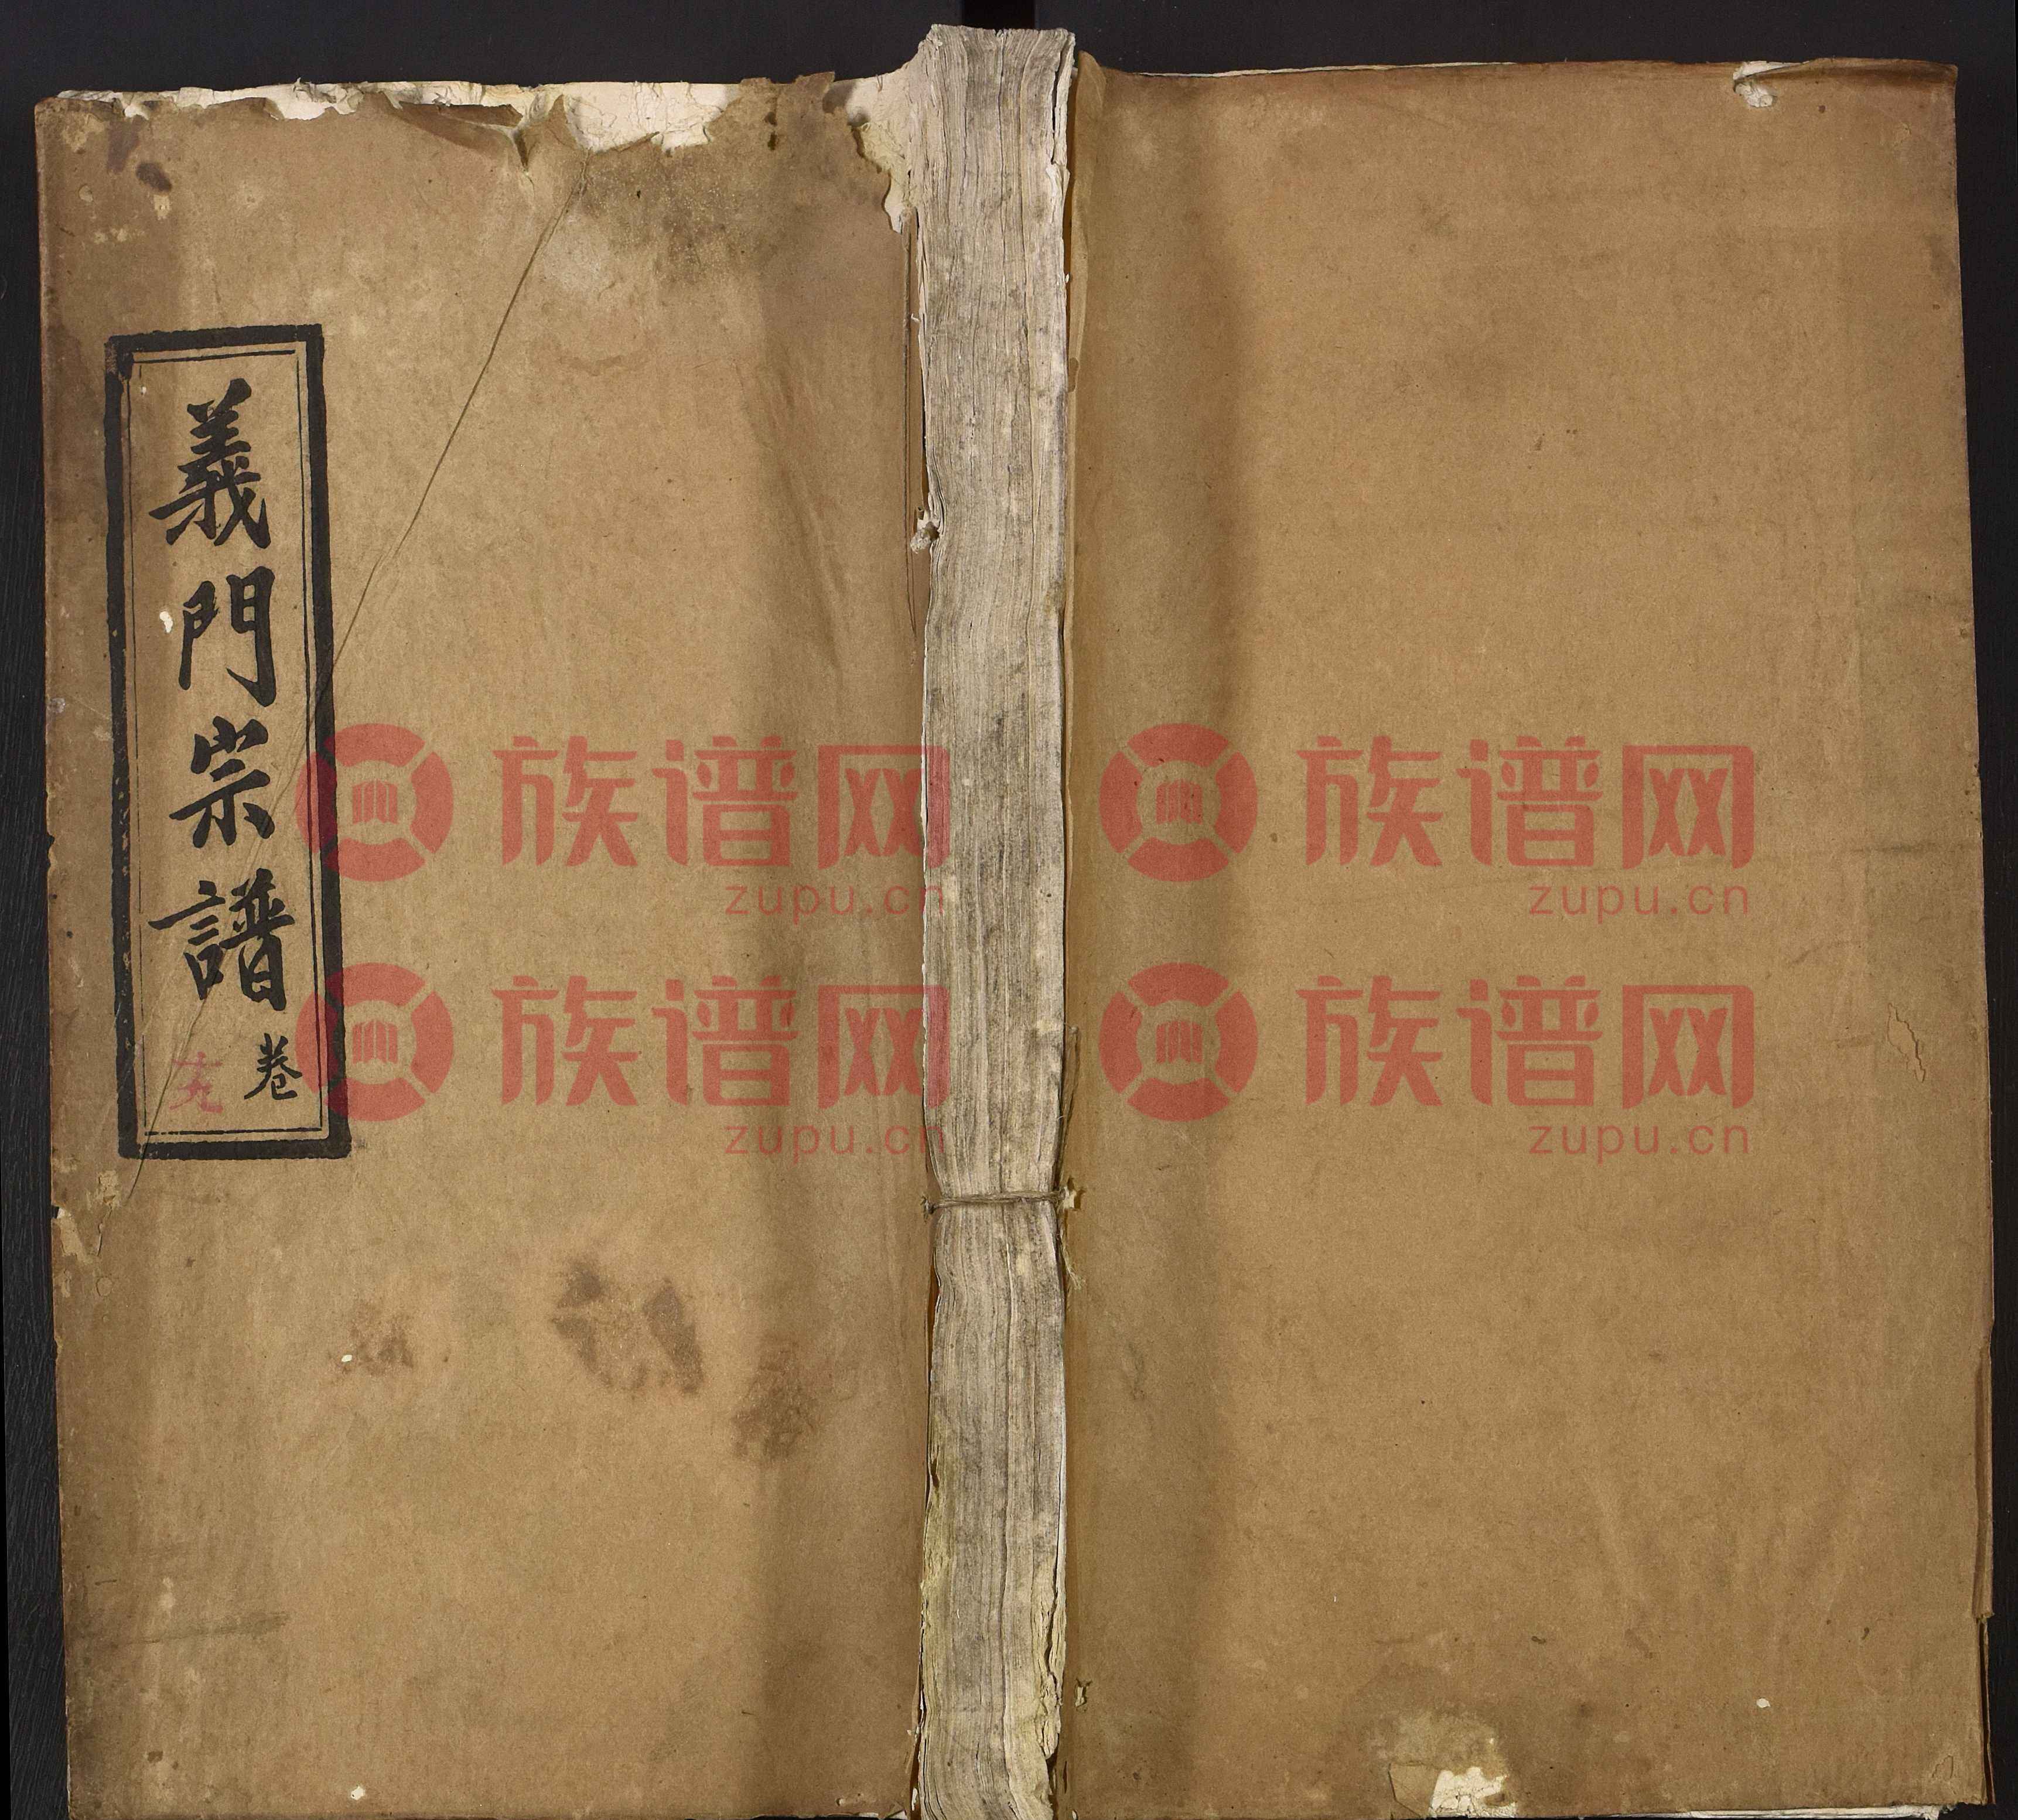 義門宗譜
卷
十九
族谱网
zupu.cn
族谱网
zupu.cn
族谱网
zupu.cn
族谱网
zupu.cn